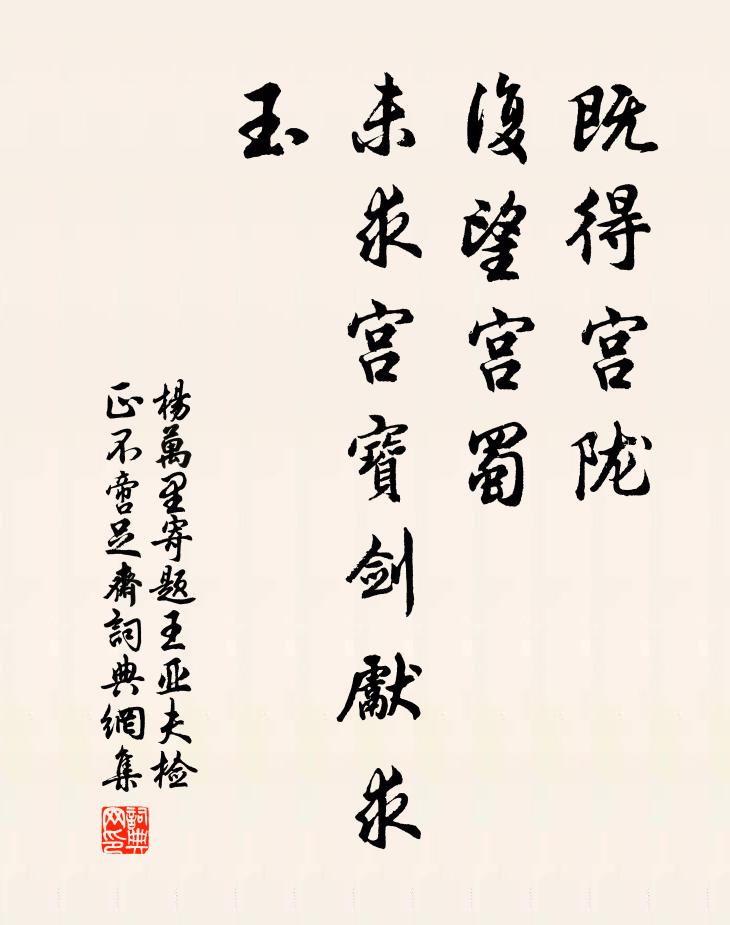 既得宫陇
復望宫蜀
未求宫寶剑獻求
玉
楊萬里寄题王亚夫检
正不啻足齋詞典網集
詞典
网印